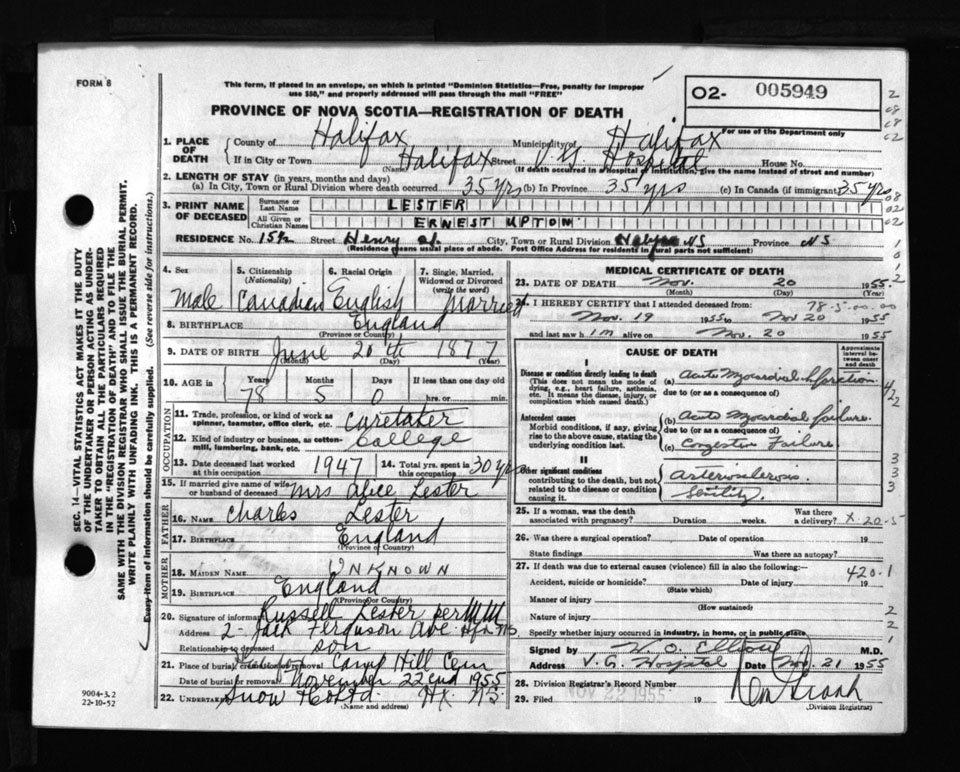 FORM 8
This form, if placed in an envelope, on which is printed "Dominion Statistics—Free, penalty for improper
use $50," and properly addressed will pass through the mail "FREE"
O2- 005949
For use of the Department only
PROVINCE OF NOVA SCOTIA—REGISTRATION OF DEATH
1. PLACE OF DEATH
County of Halifax Municipality of Halifax
If in City or Town Halifax Street V.G. Hospital House No.
(Name) (If death occurred in a Hospital or Institution, give the name instead of street and number)
2. LENGTH OF STAY (in years, months and days)
(a) In City, Town or Rural Division where death occurred 35 yrs (b) In Province 35 yrs (c) In Canada (if immigrant) 35 yrs
3. PRINT NAME OF DECEASED
Surname or Last Name LESTER
All Given or Christian Names ERNEST UPTON
RESIDENCE No. 15½ Street Henry St. City, Town or Rural Division Halifax NS Province NS
(Residence means usual place of abode. Post Office Address for residents in rural parts not sufficient)
4. Sex
Male
5. Citizenship
(Nationality)
Canadian
6. Racial Origin
English
7. Single, Married,
Widowed or Divorced
(write the word)
Married
8. BIRTHPLACE England
(Province or Country)
9. DATE OF BIRTH June 20th 1877
(Month) (Day) (Year)
10. AGE in
Years Months Days If less than one day old
78 5 0 hrs. or min.
OCCUPATION
11. Trade, profession, or kind of work as
spinner, teamster, office clerk, etc. Caretaker
12. Kind of industry or business, as cotten-
mill, lumbering, bank, etc. College
13. Date deceased last worked
at this occupation 1947
14. Total yrs. spent in
this occupation 30 yrs
15. If married give name of wife
or husband of deceased Mrs Alice Lester
FATHER
16. NAME Charles Lester
17. BIRTHPLACE England
(Province or Country)
MOTHER
18. MAIDEN NAME UNKNOWN
19. BIRTHPLACE England
(Province or Country)
20. Signature of informant Russell Lester per
Address 2- Jack Ferguson Ave. Hfx NS
Relationship to deceased son
21. Place of burial, cremation or removal Camp Hill Cem
Date of burial or removal November 22nd 1955
22. UNDERTAKER Snow & Co Ltd. Hx NS
(Name and address)
MEDICAL CERTIFICATE OF DEATH
23. DATE OF DEATH Nov. 20 1955
(Month) (Day) (Year)
24. I HEREBY CERTIFY that I attended deceased from: 78-5-00-00
Nov. 19 1955 to Nov 20 1955
and last saw him alive on Nov. 20 1955
CAUSE OF DEATH
Approximate
interval be-
tween onset
and death
I
Disease or condition directly leading to death
(This does not mean the mode of
dying, e.g., heart failure, asthenia,
etc. It means the disease, injury, or
complication which caused death.)
(a) Acute Myocardial Infarction
due to (or as a consequence of)
Antecedent causes
Morbid conditions, if any, giving
rise to the above cause, stating the
underlying condition last.
(b) Acute Myocardial failure
due to (or as a consequence of)
(c) Congestive Failure
II
Other significant conditions
contributing to the death, but not
related to the disease or condition
causing it.
Arteriosclerosis
Senility
25. If a woman, was the death
associated with pregnancy? Duration weeks.
Was there
a delivery? X-20-5
26. Was there a surgical operation? Date of operation 19
State findings Was there an autopsy?
27. If death was due to external causes (violence) fill in also the following:—
420.1
Accident, suicide or homicide? Date of injury 19
(State which)
Manner of injury
(How sustained)
Nature of injury
Specify whether injury occurred in industry, in home, or in public place
Signed by W. O. Elliott M.D.
Address V.G. Hospital Date Nov. 21 1955
28. Division Registrar's Record Number
29. Filed NOV 22 1955 19
(Division Registrar)
SEC. 14—VITAL STATISTICS ACT MAKES IT THE DUTY
OF THE UNDERTAKER OR PERSON ACTING AS UNDER-
TAKER TO OBTAIN ALL THE PARTICULARS REQUIRED
IN THE "REGISTRATION OF DEATH" AND TO FILE THE
SAME WITH THE DIVISION REGISTRAR WHO SHALL ISSUE THE BURIAL PERMIT.
WRITE PLAINLY WITH UNFADING INK. THIS IS A PERMANENT RECORD.
Every item of information should be carefully supplied. (See reverse side for instructions.)
9004-3.2
22-10-52